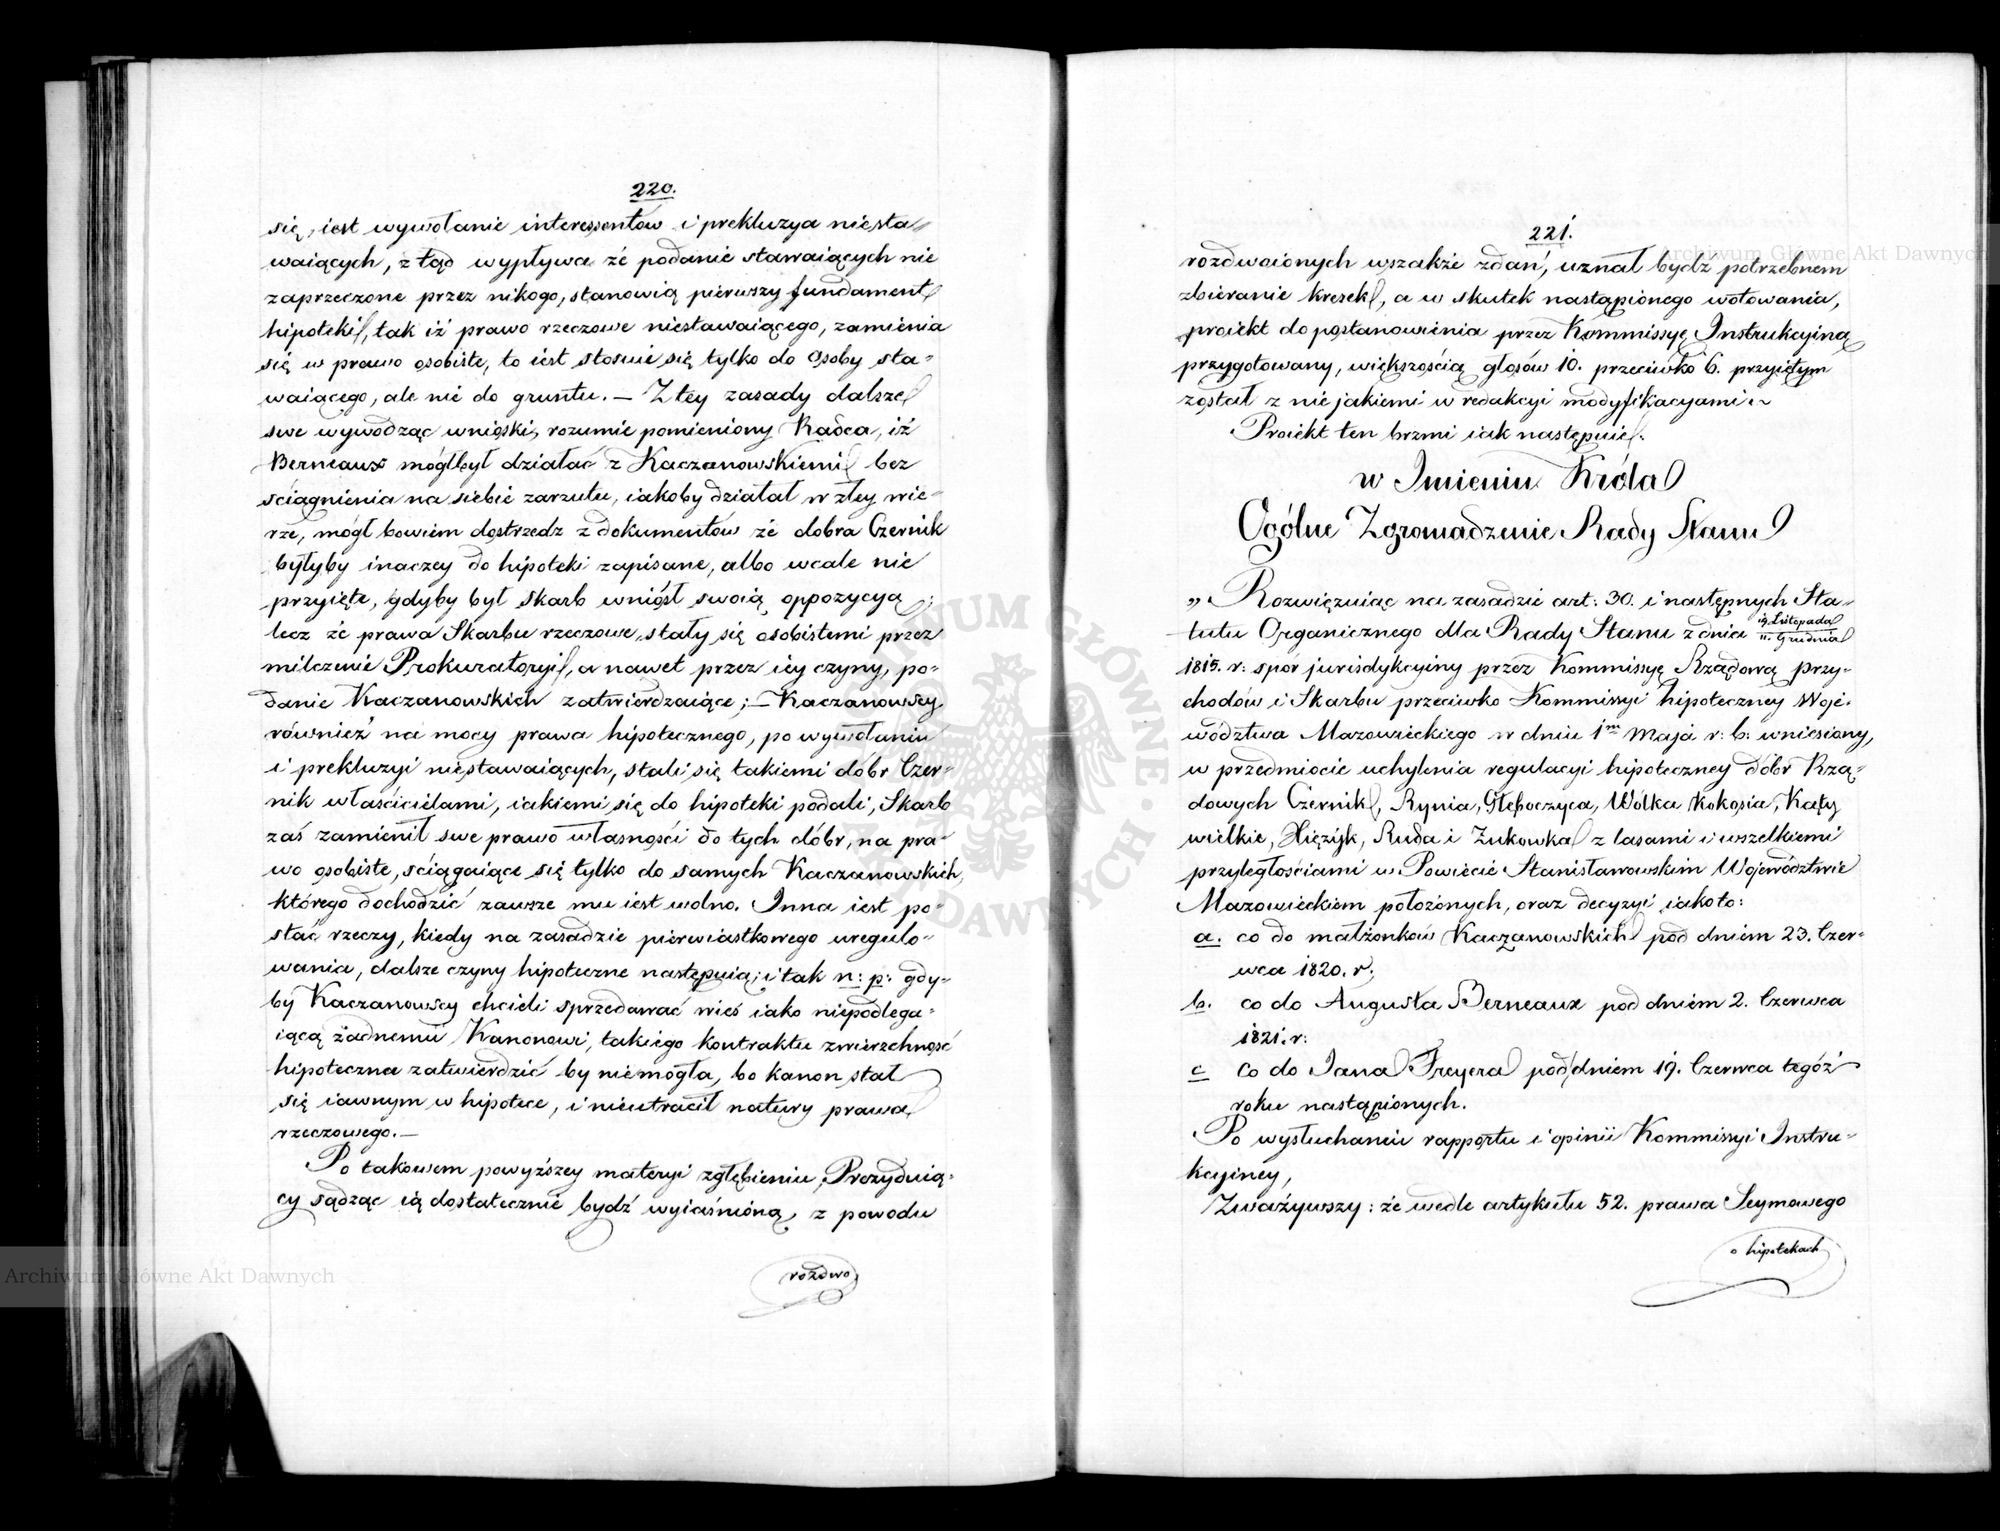 220.
się, iest wywołanie interessentów i prekluzya niesta=
waiących, z tąd wypływa że podanie stawaiących nie
zaprzeczone przez nikogo, stanowią pierwszy fundament
hipoteki, tak iż prawo rzeczowe niestawaiącego, zamienia
się w prawo osobiste, to iest stosuie się tylko do Osoby sta=
waiącego, ale nie do gruntu. — Z tey zasady dalsze
swe wywodząc wnioski, rozumie pomieniony Radca, iż
Berneaux mógłbył działać z Kaczanowskiemi bez
sciągnienia na siebie zarzutu, iakoby działał w złey wie=
rze, mógł bowiem dostrzedz z dokumentów że dobra Czernik
byłyby inaczey do hipoteki zapisane, albo wcale nie
przyięte, gdyby był Skarb wniósł swoią oppozycyą;
lecz że prawa Skarbu rzeczowe, stały się osobistemi przez
milczenie Prokuratoryi, a nawet przez iey czyny, po=
danie Kaczanowskich zatwierdzaiące; — Kaczanowscy
również na mocy prawa hipotecznego, po wywołaniu
i prekluzyi niestawaiących, stali się takiemi dóbr Czer=
nik właścicielami, iakiemi się do hipoteki podali, Skarb
zaś zamienił swe prawo własności do tych dóbr, na pra=
wo osobiste, sciągaiące się tylko do samych Kaczanowskich,
którego dochodzić zawsze mu iest wolno. Inna iest po=
stać rzeczy, kiedy na zasadzie pierwiastkowego uregulo=
wania, dalsze czyny hipoteczne następuią; i tak n: p: gdy=
by Kaczanowscy chcieli sprzedawać wieś iako niepodlega=
iącą żadnemu Kanonowi, takiego kontraktu zwierzchność
hipoteczna zatwierdzić by niemogła, bo kanon stał
się iawnym w hipotece, i nieutracił natury prawa
rzeczowego. —
Po takowem powyższey materyi zgłębieniu, Prezyduią=
cy sądząc ią dostatecznie bydź wyiaśnioną, z powodu
rozdwo
221.
rozdwoionych wszakże zdań, uznał bydź potrzebnem
zbieranie kresek, a w skutek nastąpionego wotowania,
proiekt do postanowienia przez Kommissyę Instrukcyiną
przygotowany, większością głosów 10. przeciwko 6. przyiętym
został z nie jakiemi w redakcyi modyfikacyami.
Proiekt ten brzmi iak następuie:
w Imieniu Króla
Ogólne Zgromadzenie Rady Stanu
„ Rozwięzuiąc na zasadzie art: 30. i następnych Sta=
tutu Organicznego dla Rady Stanu z dnia 19. Listopada / 11. Grudnia
1815. r: spor jurisdykcyiny przez Kommissyę Rządową przy=
chodów i Skarbu przeciwko Kommissyi hipoteczney Woje=
wództwa Mazowieckiego w dniu 1m Maja r: b: wniesiony,
w przedmiocie uchylenia regulacyi hipoteczney dóbr Rzą=
dowych Czernik, Rynia, Głęboczyca, Wólka Kokosia, Kąty
wielkie, Ruda i Zukowka z lasami i wszelkiemi
przyległościami w Powiecie Stanisławowskim Województwie
Mazowieckiem położonych, oraz decyzyi iako to:
a. co do małżonków Kaczanowskich pod dniem 23. Czer=
wca 1820. r:
b. co do Augusta Berneaux pod dniem 2. Czerwca
1821. r:
c co do Jana Freyera pod dniem 19. Czerwca tegóż
roku nastąpionych.
Po wysłuchaniu rapportu i opinii Kommissyi Instru=
kcyiney,
Zważywszy: że wedle artykułu 52. prawa Seymowego
o hipotekach
Archiwum Główne Akt Dawnych
Archiwum Główne Akt Dawnych
ARCHIWUM GŁÓWNE AKT DAWNYCH